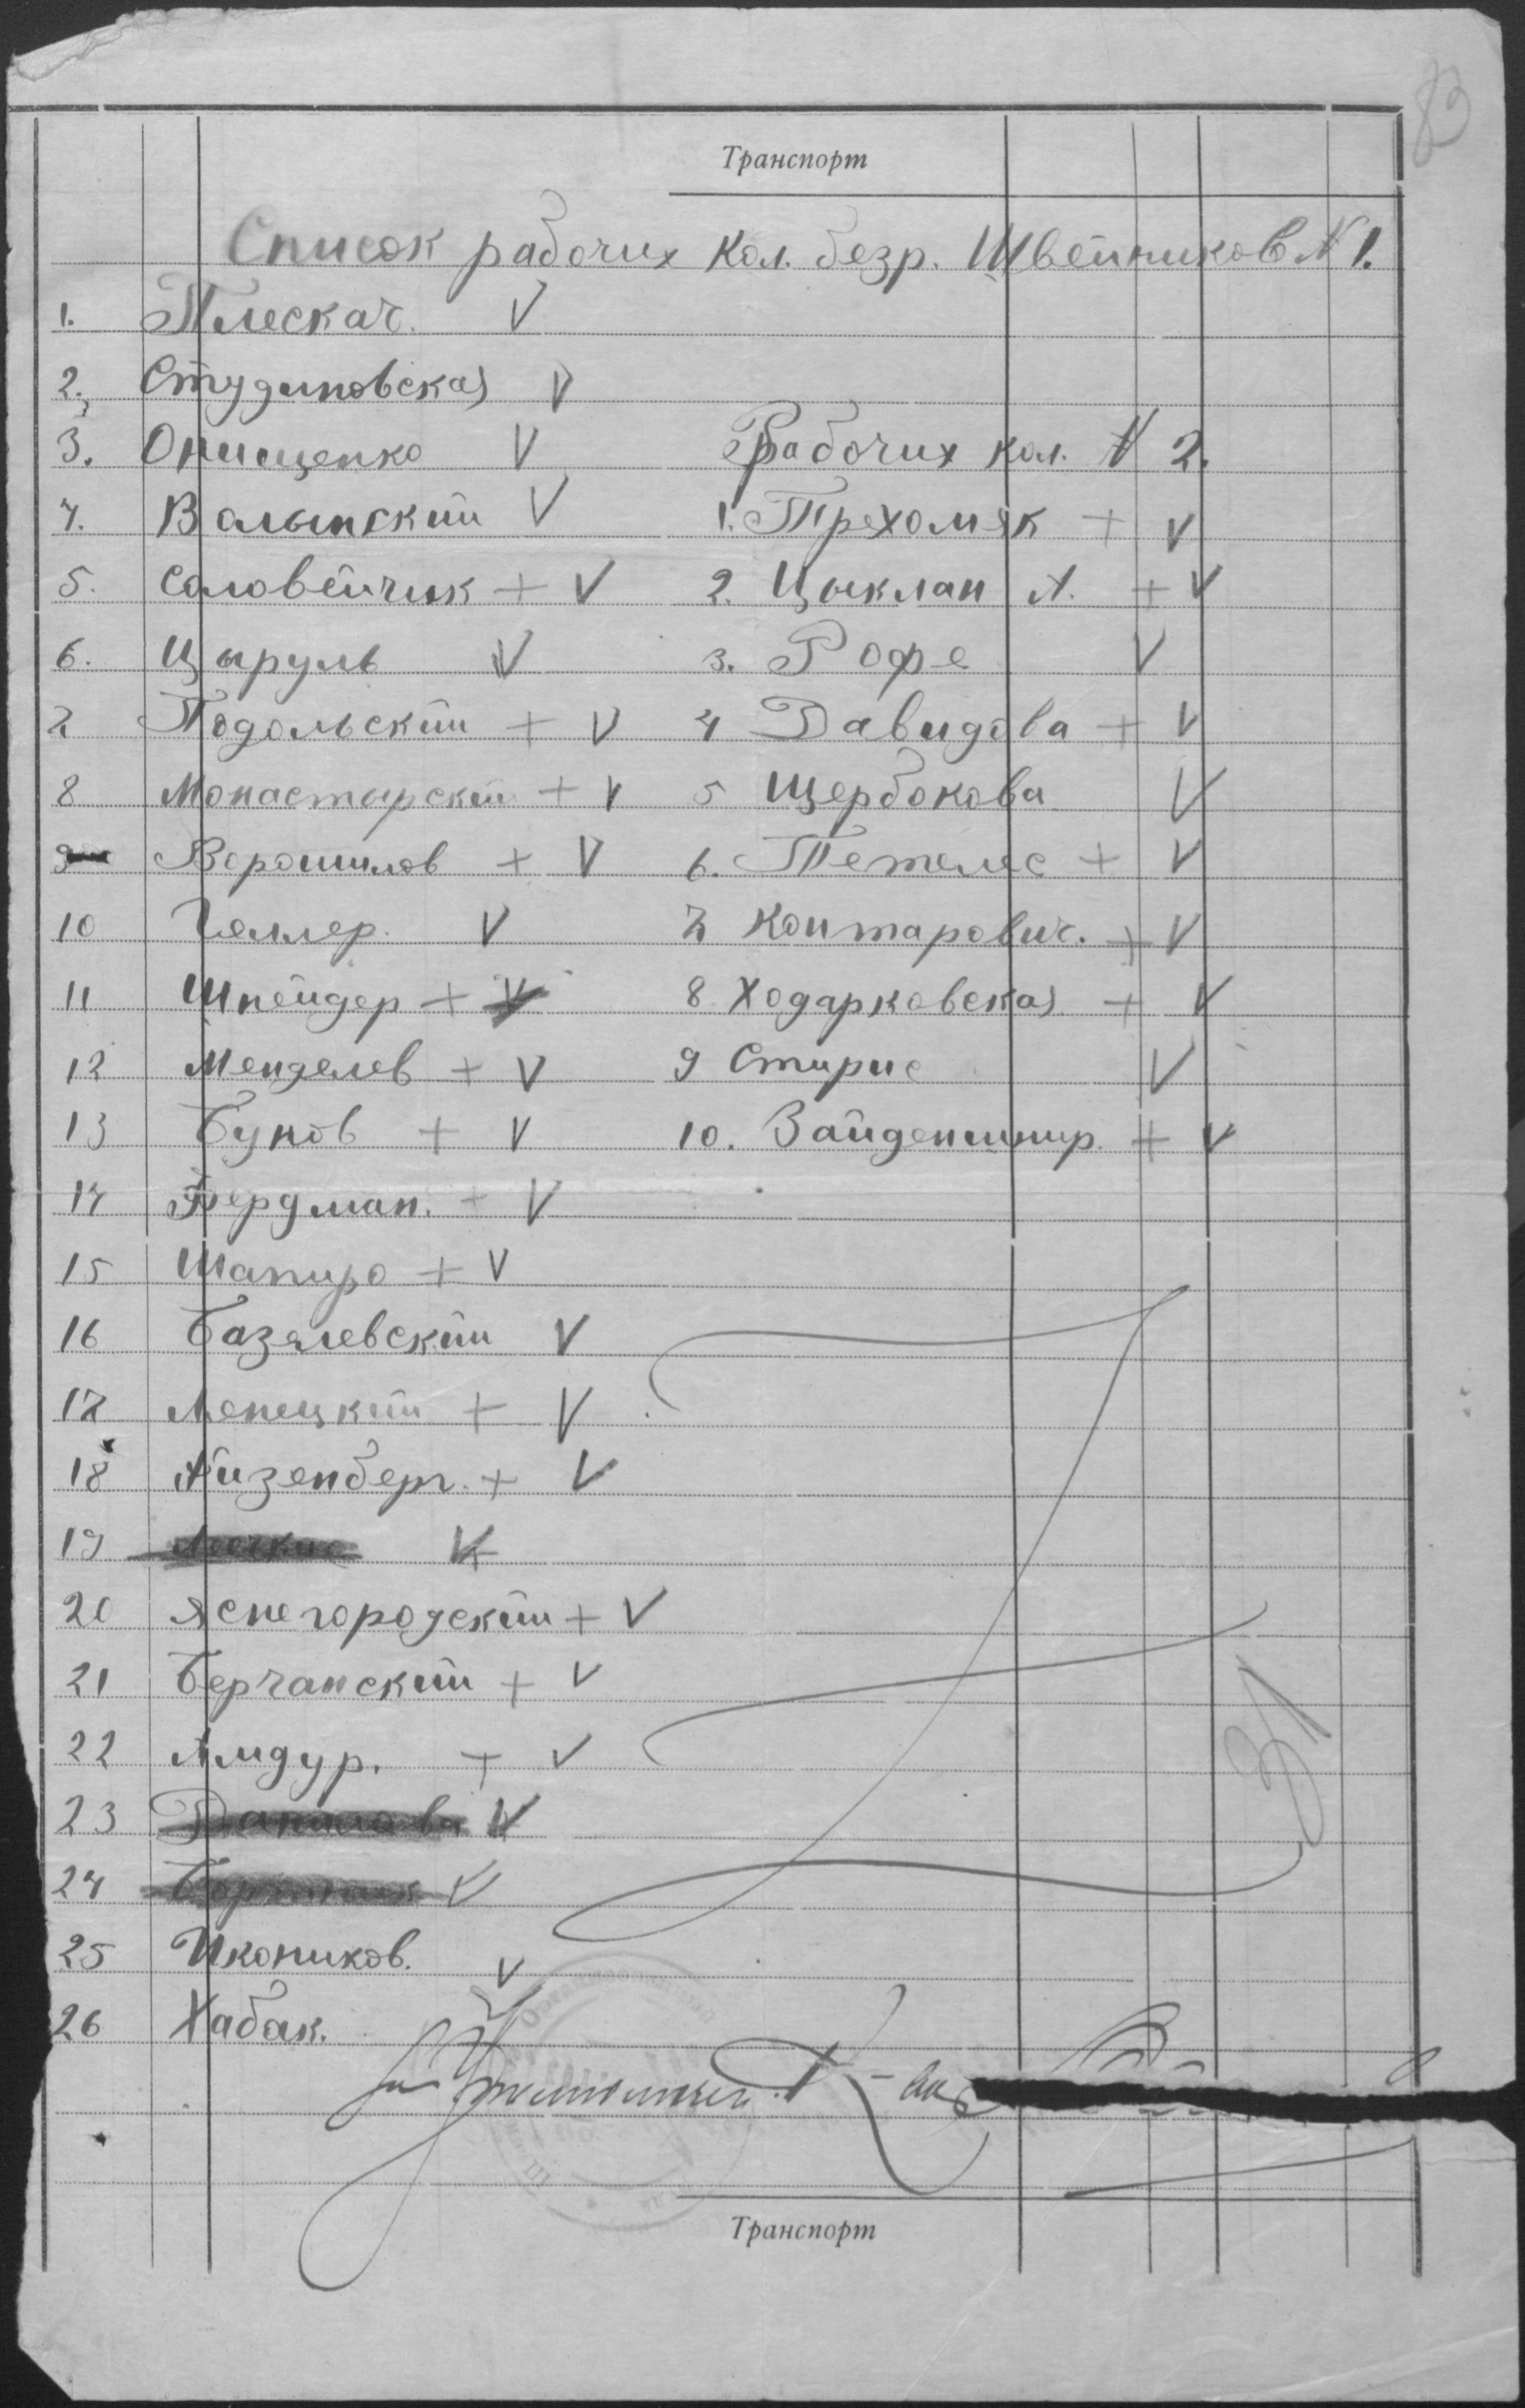 83
Транспорт
Список рабочих кол. безр. Швейников N 1.
1. Плескач. V
2. Студиновская V
3. Онищенко V
4. Валынский V
5. Соловейчик + V
6. Цыруль V
7 Подольский + V
8 Монастырский + V
9 Ворошилов + V
10 Геллер. V
11 Шнейдер + V
12 Менделев + V
13 Бунов + V
14 Фердман. + V
15 Шапиро + V
16 Базилевский V
17 Ленецкий + V
18 Айзенберг. + V
19 V
20 Яснегородский + V
21 Берчанский + V
22 Амдур. + V
23 Данилова V
24 V
25 Икоников. V
26 Хабак. V
Рабочих кол. N 2.
1. Трехомяк + V
2. Цыклан А. + V
3. Рофе V
4 Давидова + V
5 Щербокова V
6. Тетелес + V
7 Контарович. + V
8 Ходарковская + V
9 Стирис V
10. Зайденшнир. + V
31
Транспорт